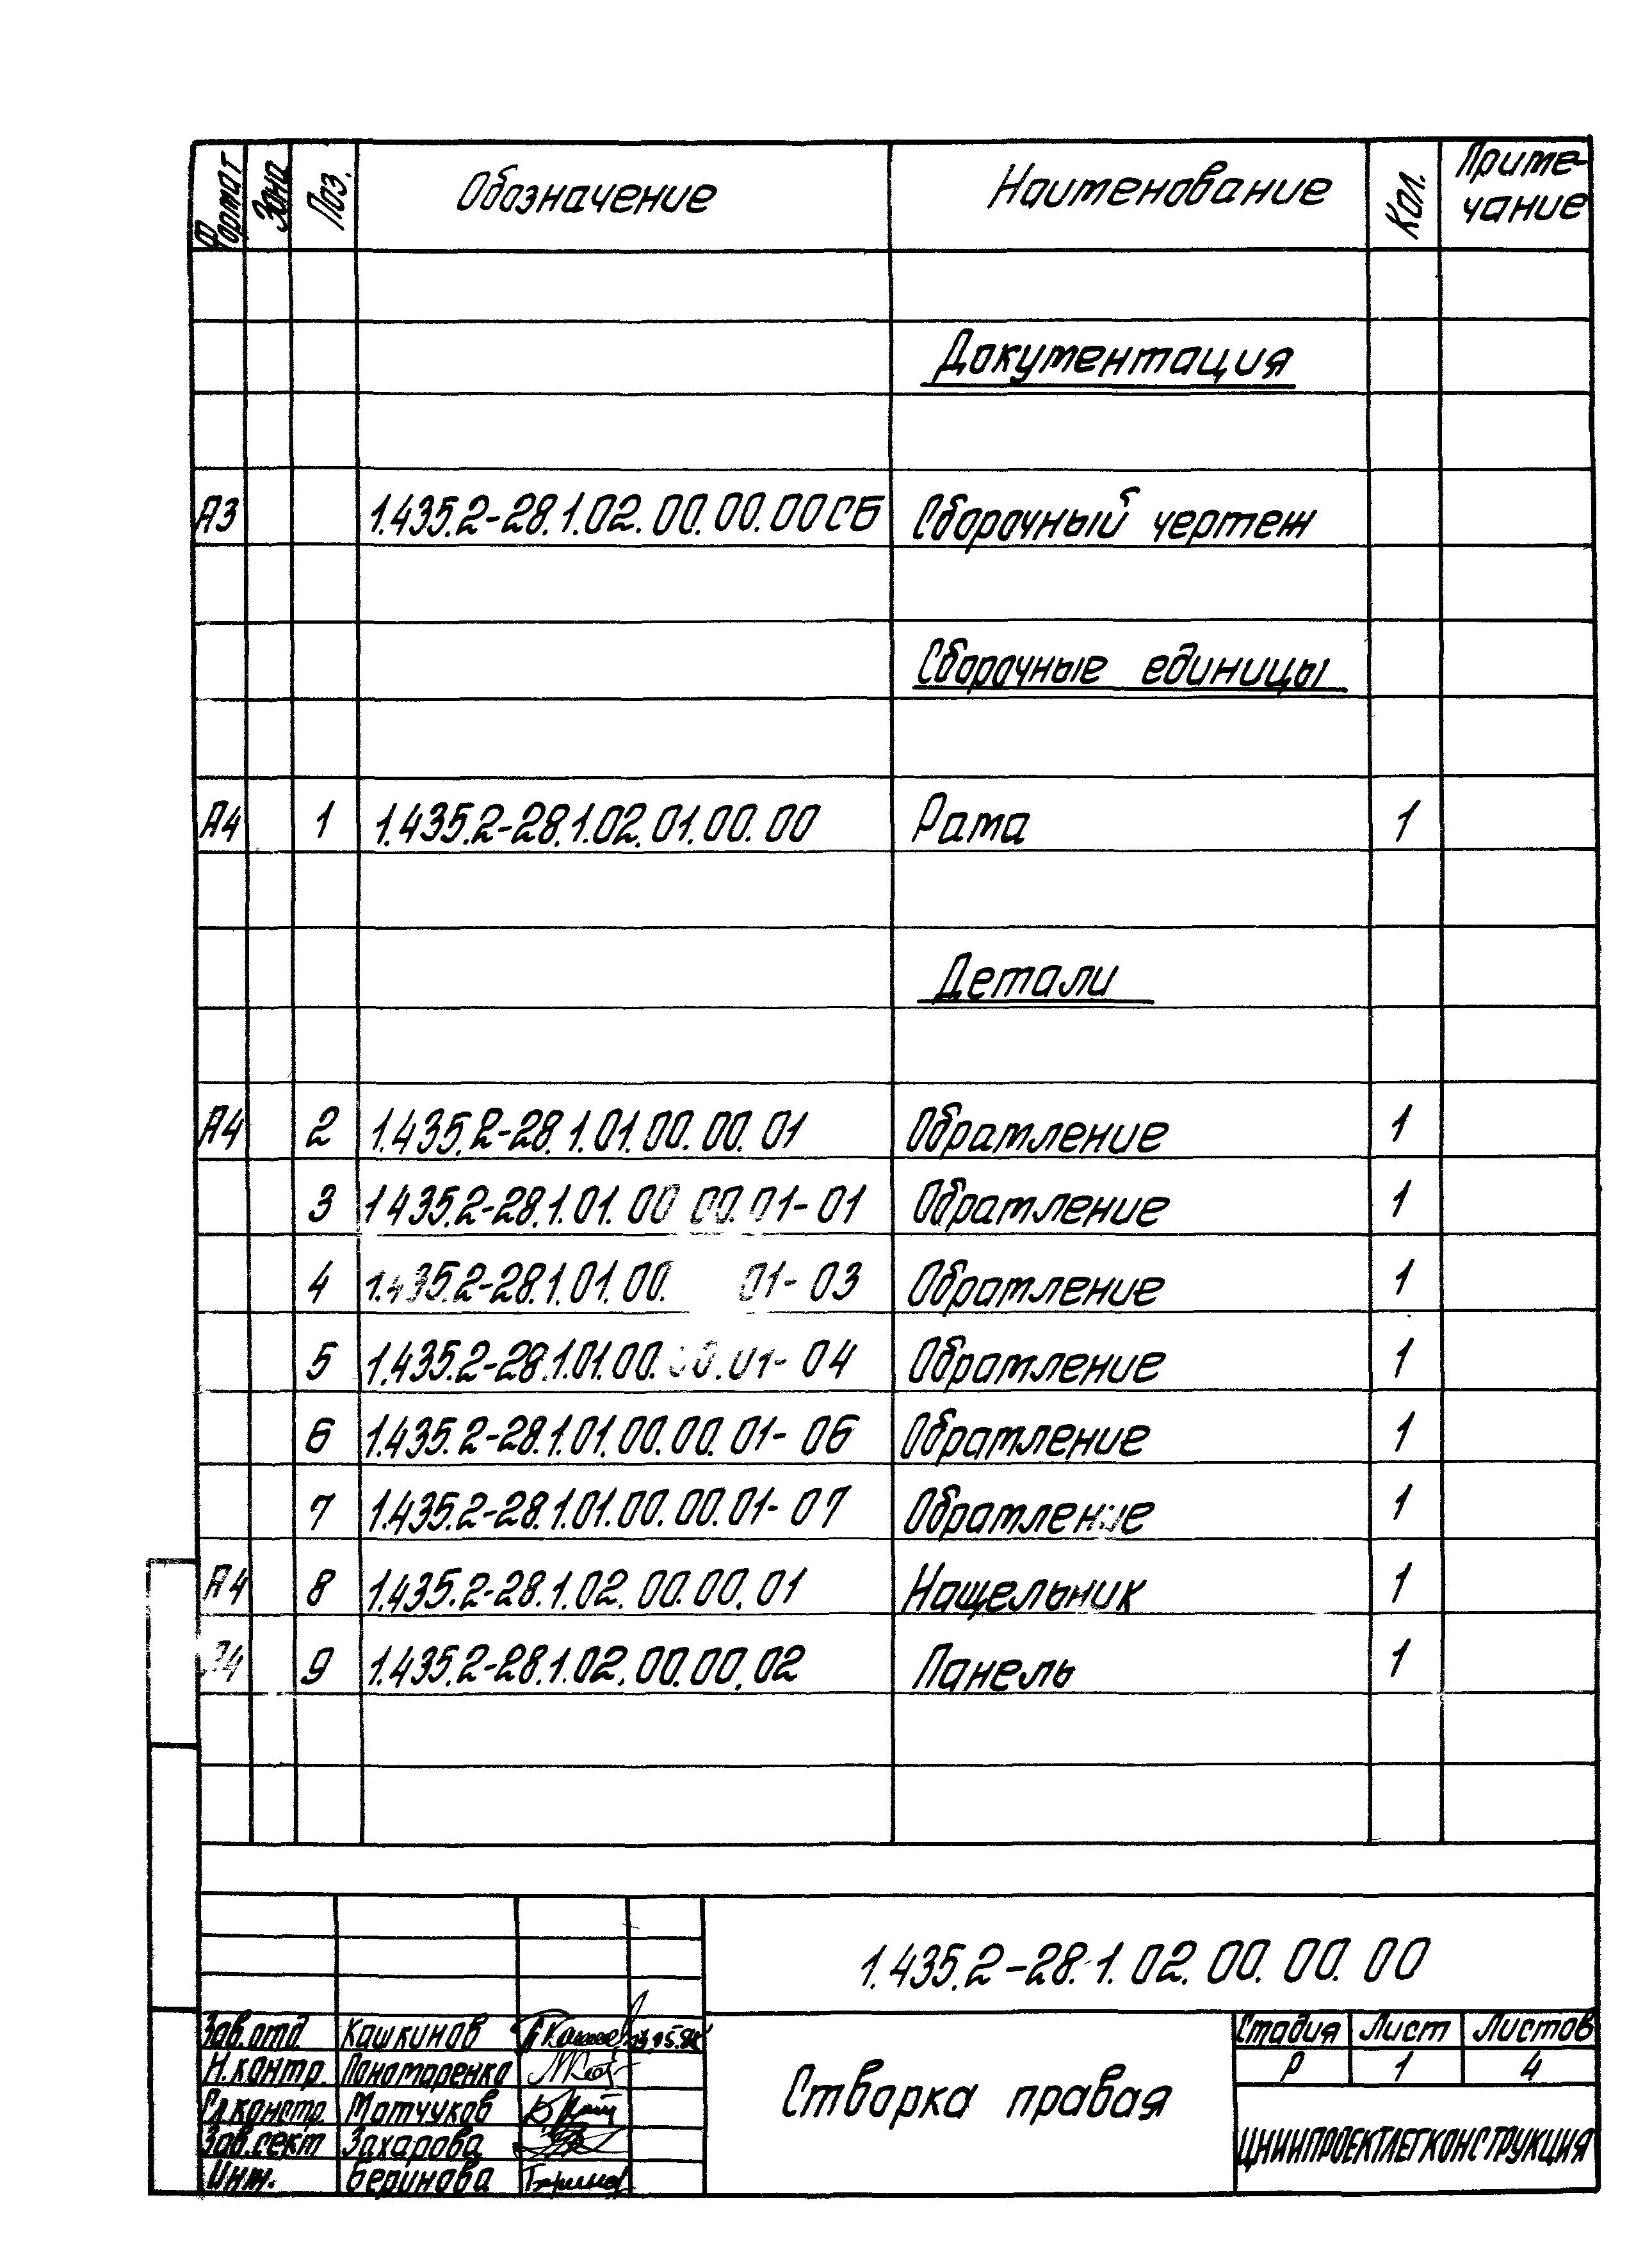 Формат Зона Поз. Обозначение Наименование Кол. Приме-
чание
Документация
А3 1.435.2-28.1.02.00.00.00СБ Сборочный чертеж
Сборочные единицы
А4 1 1.435.2-28.1.02.01.00.00 Рама 1
Детали
А4 2 1.435.2-28.1.01.00.00.01 Обрамление 1
3 1 435.2-28.1.01.00 00.01-01 Обрамление 1
4 1.435.2-28.1.01.00. 01-03 Обрамление 1
5 1.435.2-28.1.01.00.00.01-04 Обрамление 1
6 1.435.2-28.1.01.00.00.01-06 Обрамление 1
7 1.435.2-28.1.01.00.00.01-07 Обрамление 1
А4 8 1.435.2-28.1.02.00.00.01 Нащельник 1
А4 9 1.435.2-28.1.02.00.00.02 Панель 1
1.435.2-28.1.02.00.00.00
Зав.отд. Кашкинов
Н.контр. Пономаренко
Гл.констр. Матчуков
Зав.сект Захарова
Инж. Беринова
Створка правая
Стадия Лист Листов
Р 1 4
ЦНИИПРОЕКТЛЕГКОНСТРУКЦИЯ